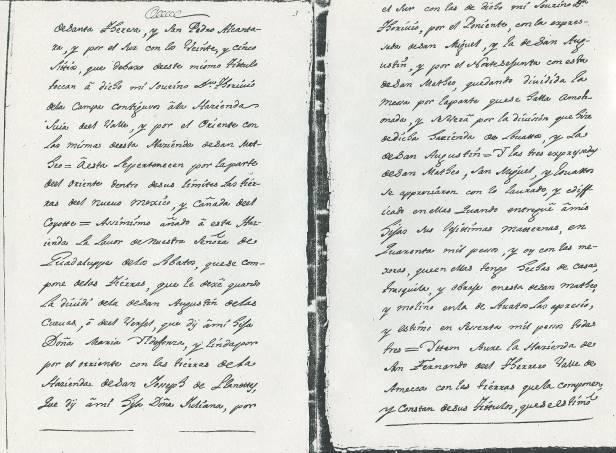 de Santa Theresa, y San Pedro Alcanta-
ra, y por el Sur con los Veinte, y cinco
Sitios, que debaxo de este mismo titulo
toccan á dicho mi Sourino Dn
de la Campa contiguos á la Hazienda
Suia del Valle, y por el Oriente con
las mismas de esta Hazienda de San Mat-
heo = Á esta le pertenecen por la parte
del oriente dentro de sus limites las tier-
ras del Nuevo Mexico, y Cañada del
Coyotte = Assimismo añado á esta Haz-
ienda la Lavor de Nuestra Señora de
Guadaluppe de los Abatos, que se com-
pone de las tierras, que le dexé quando
la dividí de la de San Augustin de las
Cuevas, ó del Vergel, que dí á mi Hija
Doña Maria Ildefonza, y linda por
por el orriente con las tierras de la
Hazienda de San Joseph de Llanettes,
que dí á mi Hija Doña Juliana, por
3
el Sur con las de dicho mi Sourino Dn
por el Poniente, con la expres-
sada de San Miguel, y la de San Aug-
ustin, y por el Norte se junta con esta
de San Matheo, quedando dividida la
messa por la parte que se halla Amoh-
onada, y se Verá por la divicion que hize
de dicha Hazienda de y la
de San Augustin = Y las tres expressadas
de San Matheo, San Miguel, y
se appreciaron con lo Laurado, y ediff-
icado en ellas Quando entregué á mis
Hijas sus legittimas Matternas, en
Quarenta mil pessos, y oy con las me-
xoras, que en ellas tengo hechas de casas,
trasquila, y obraje en esta de San Matheo,
y molino en la de las apresio,
y estimo en sesenta mil pessos todas
tres = Ittem la Hazienda de
San Fernando del Herrero Valle de
Ameca con las tierras que la componen,
y Constan de sus tittulos, que se estimó